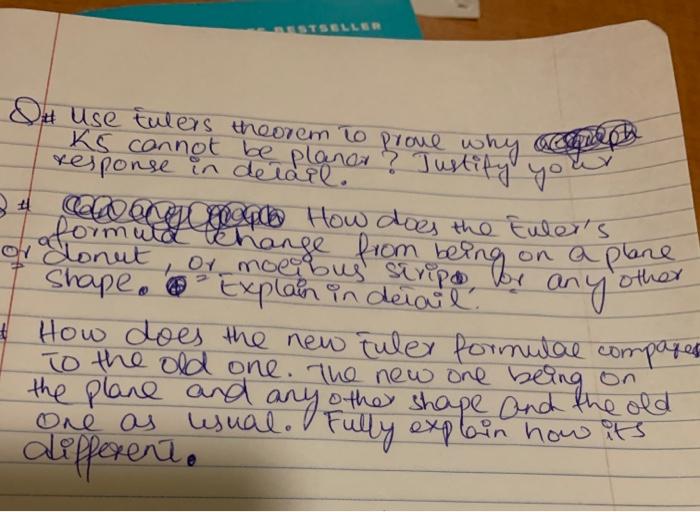 BESTSELLER
Q# Use Eulers theorem to prove why
K5 cannot be planar? Justify your
response in detail.
# How does the Euler's
formula change from being on a plane
or a donut, or moeibus strip, or any other
shape. Explain in detail.
How does the new Euler formulae compares
to the old one. The new one being on
the plane and any other shape and the old
one as usual. Fully explain how its
different.